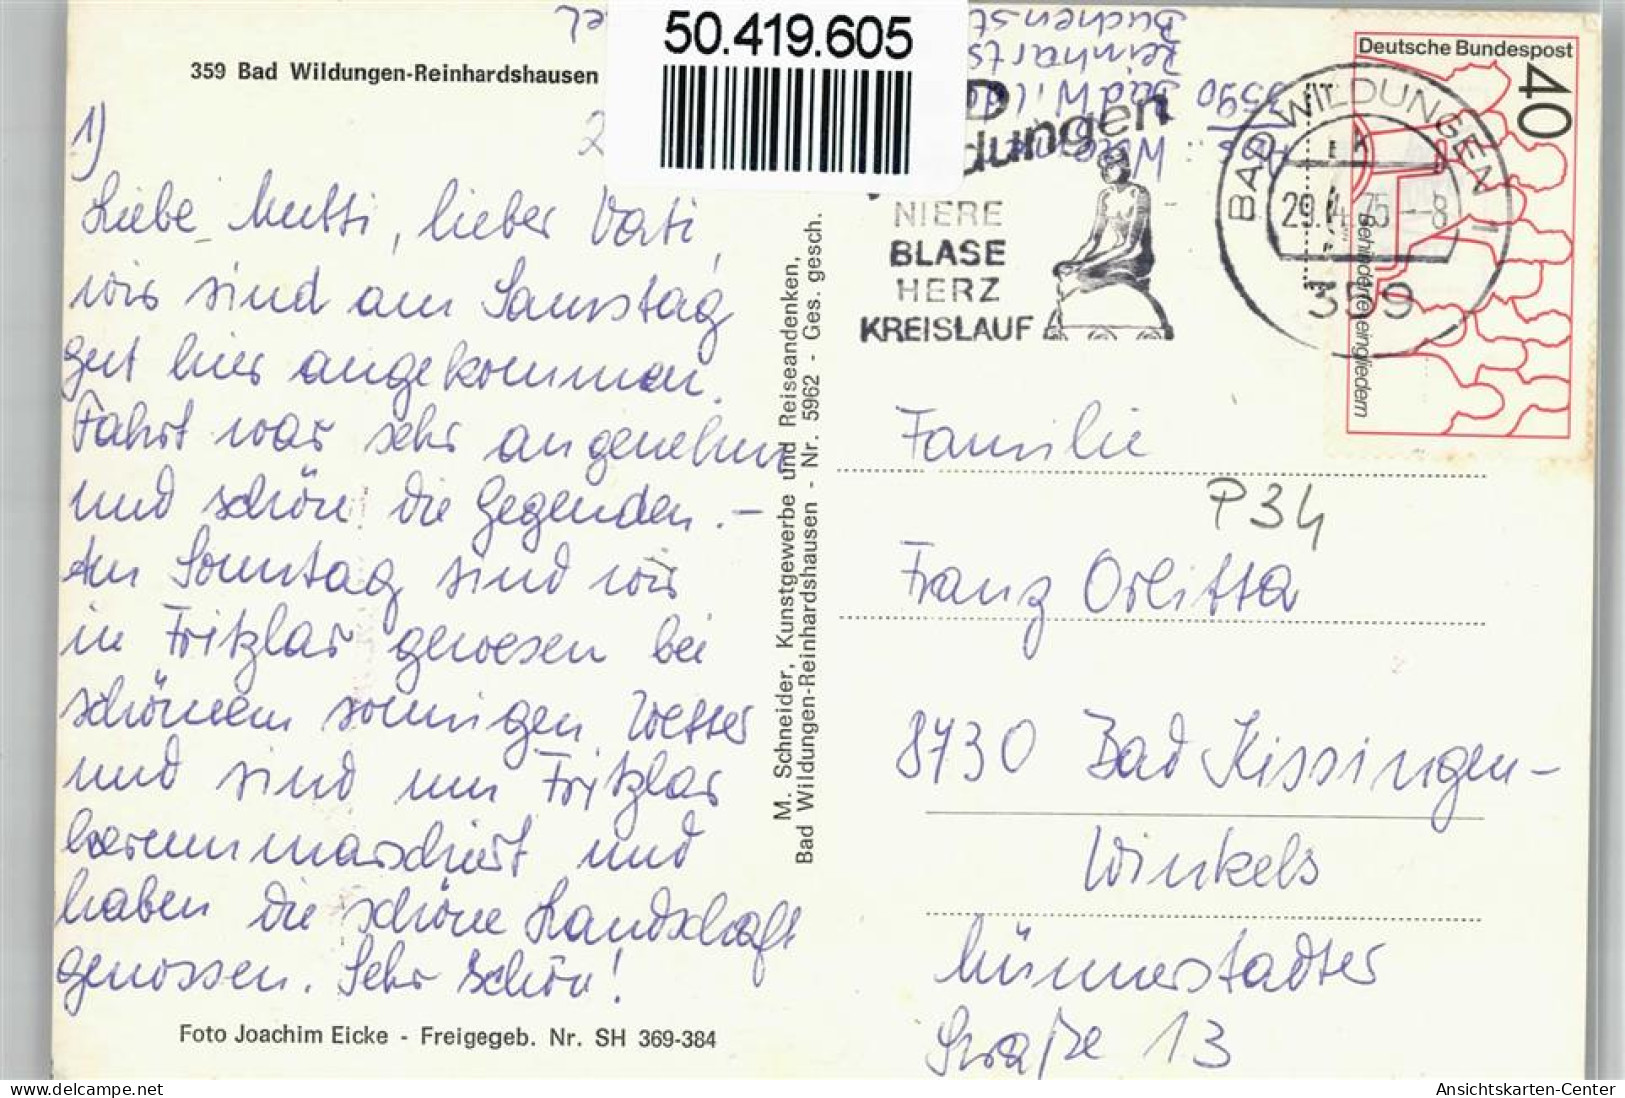 50.419.605
359 Bad Wildungen-Reinhardshausen
1)
Liebe Mutti, lieber Vati,
wir sind am Samstag
gut hier angekommen.
Fahrt war sehr angenehm
und schön die Gegenden. –
Am Sonntag sind wir
in Fritzlar gewesen bei
schönem sonnigen Wetter
und sind um Fritzlar
herummarschiert und
haben die schöne Landschaft
genossen. Sehr schön!
Foto Joachim Eicke - Freigegeb. Nr. SH 369-384
M. Schneider, Kunstgewerbe und Reiseandenken,
Bad Wildungen-Reinhardshausen - Nr. 5962 - Ges. gesch.
3590
Bad Wild
Reinharts
Buchenst
NIERE
BLASE
HERZ
KREISLAUF
BAD WILDUNGEN 1
29.-4.75--8
359
Deutsche Bundespost
40
Behinderte eingliedern
Familie
P34
Franz Orlitta
8730 Bad Kissingen-
Winkels
Münnerstadter
Straße 13
www.delcampe.net
Ansichtskarten-Center